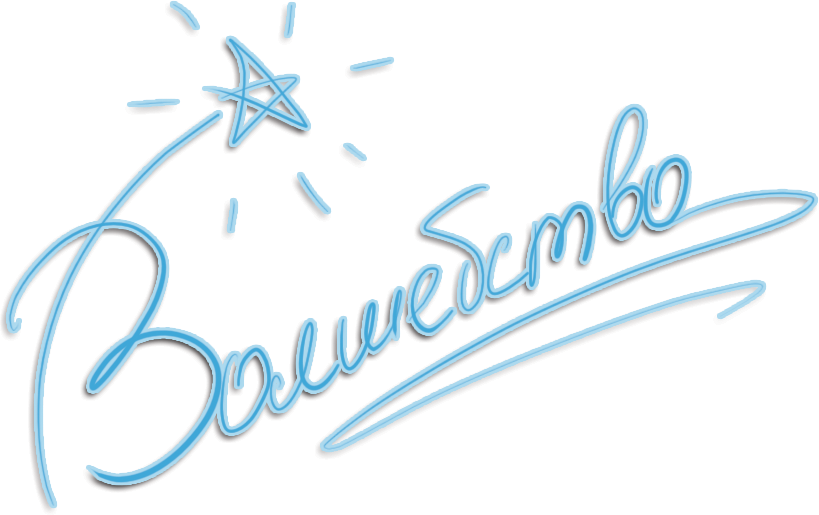 Волшебство